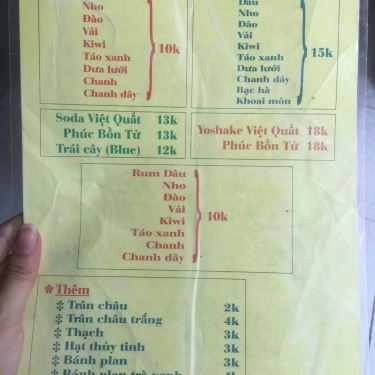 Nho
Đào
Vải
Kiwi
Táo xanh
Dưa lưới
Chanh
Chanh dây
10k
Dâu
Nho
Đào
Dâu
Vải
Kiwi
Táo xanh
Dưa lưới
Chanh dây
Bạc hà
Khoai môn
15k
Soda Việt Quất 13k
Phúc Bồn Tử 13k
Trái cây (Blue) 12k
Yoshake Việt Quất 18k
Phúc Bồn Tử 18k
Rum Dâu
Nho
Đào
Vải
Kiwi
Táo xanh
Chanh
Chanh dây
10k
Thêm
Trân châu 2k
Trân châu trắng 4k
Thạch 3k
Hạt thủy tinh 3k
Bánh plan 3k